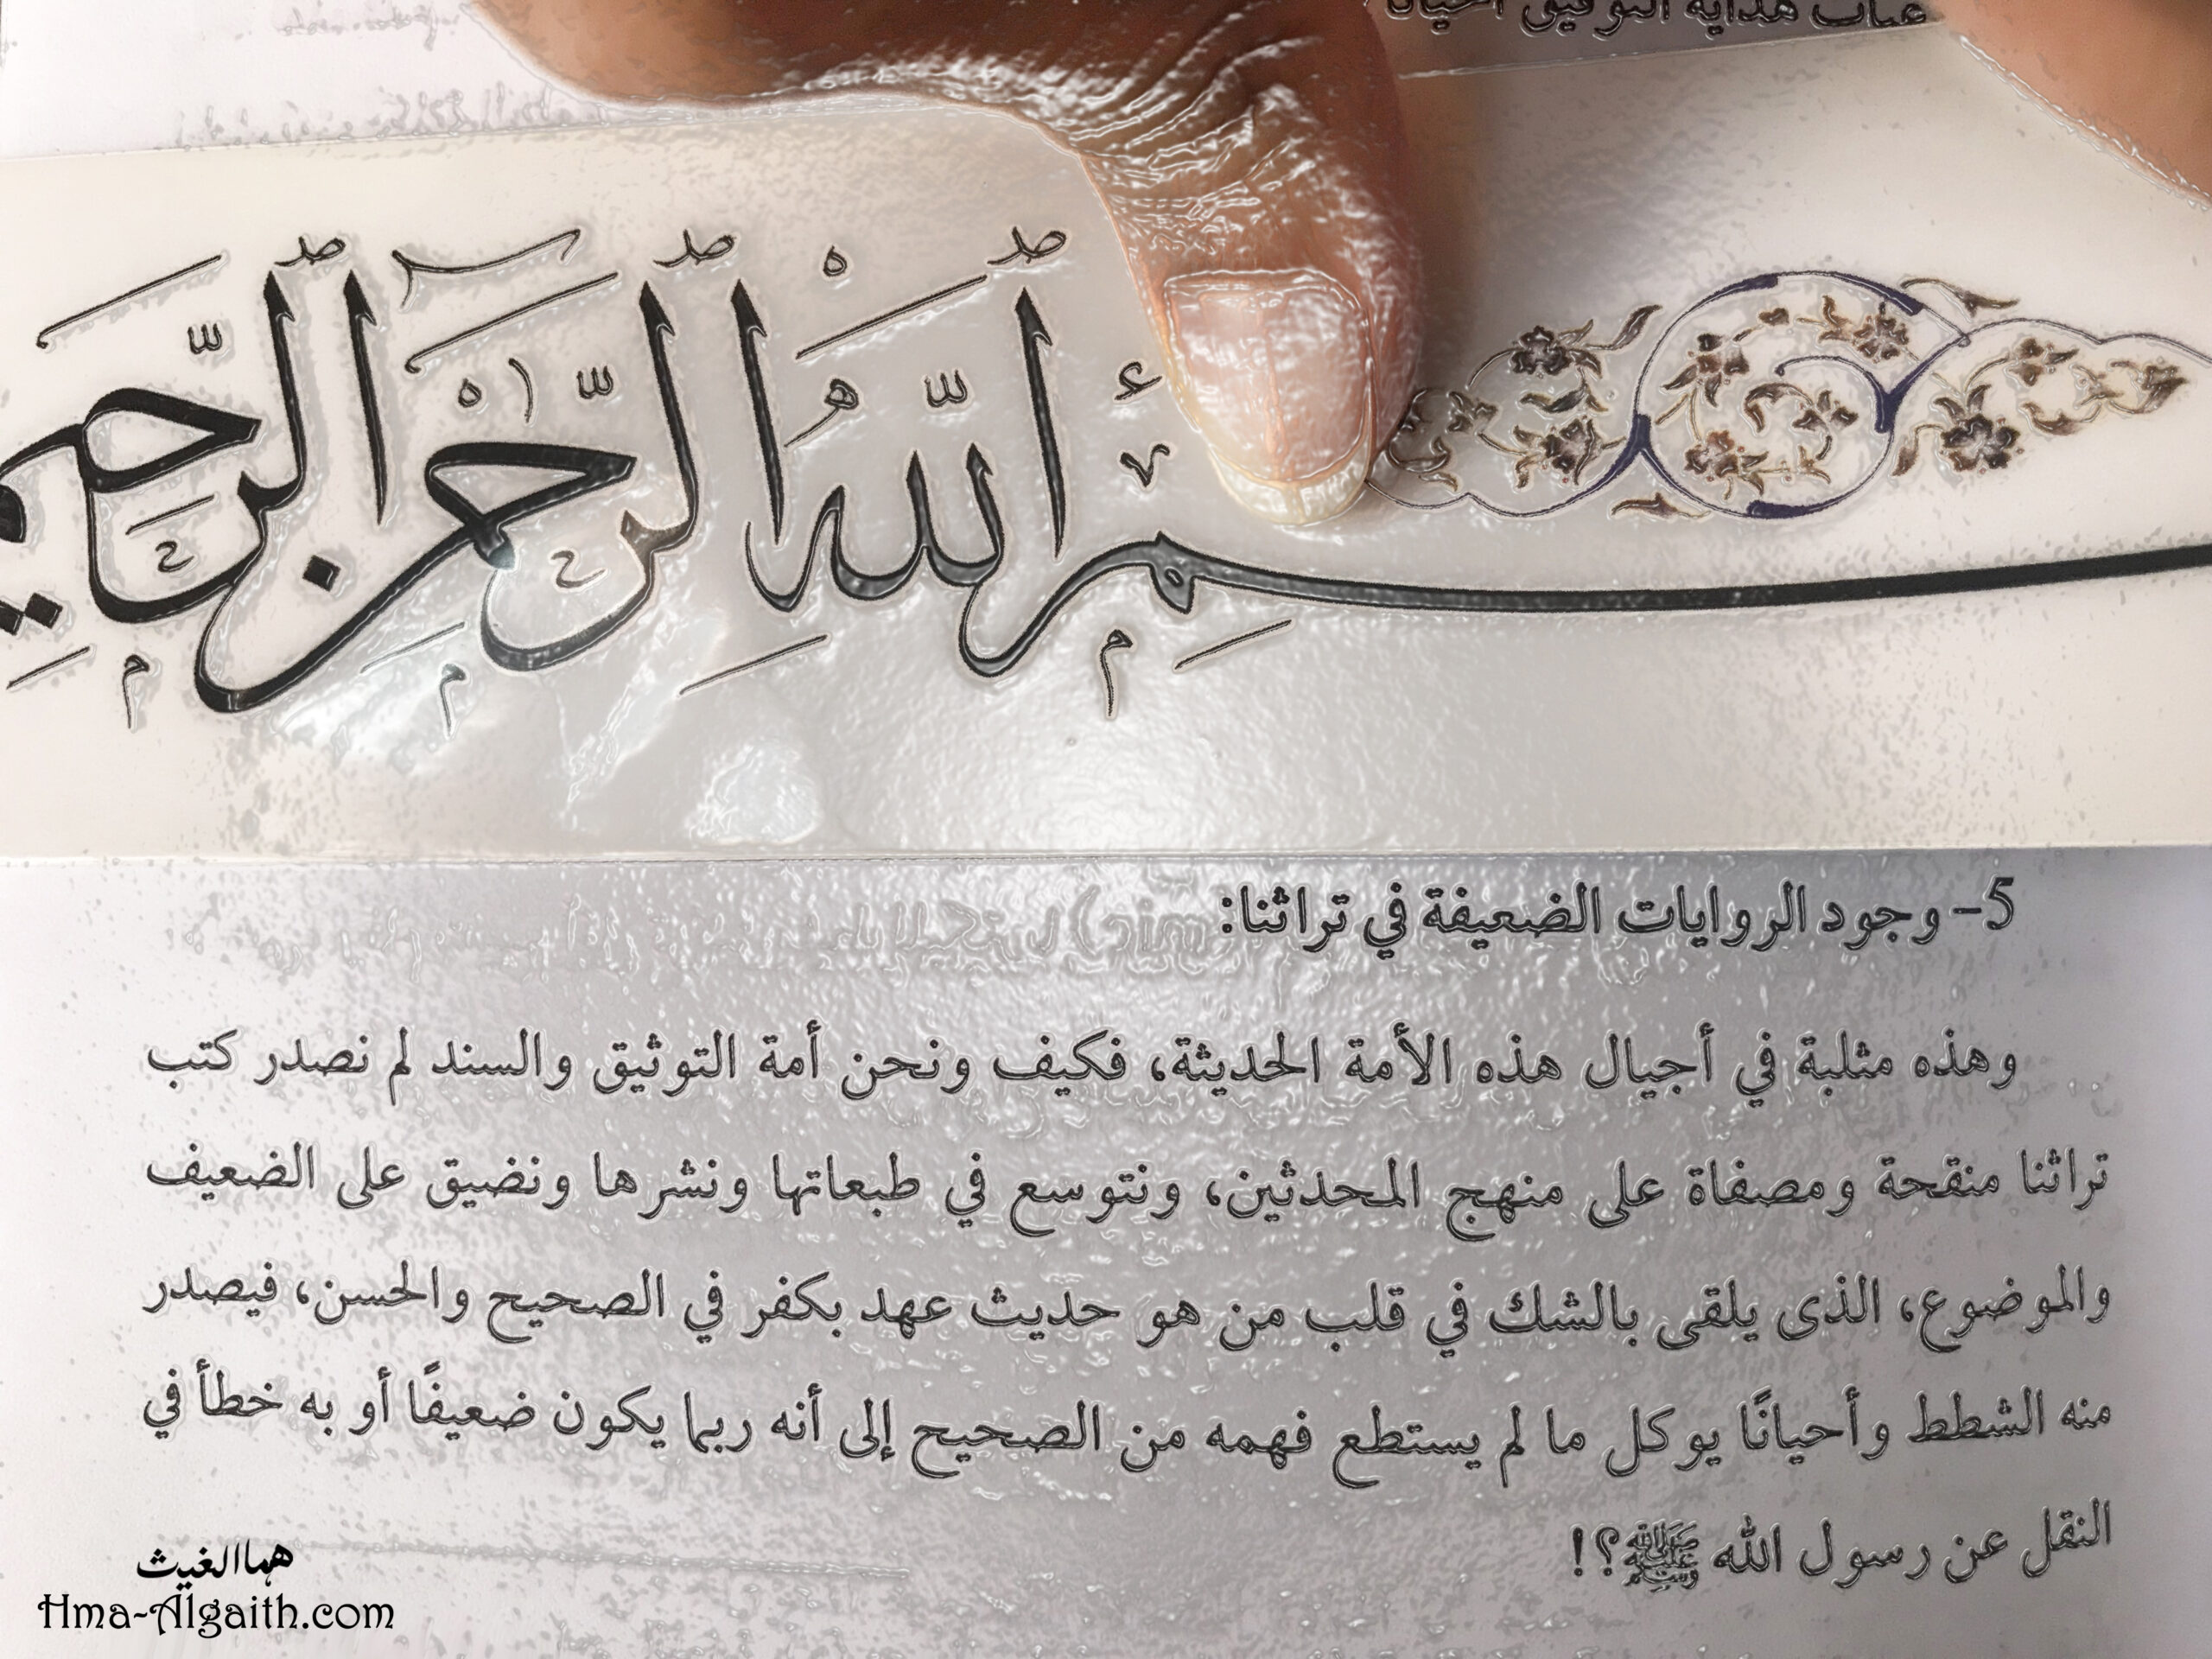 هداية التوفيق أحيانًا
بسم الله الرحمن الرحيم
5- وجود الروايات الضعيفة في تراثنا:
وهذه مثلبة في أجيال هذه الأمة الحديثة، فكيف ونحن أمة التوثيق والسند لم نصدر كتب
تراثنا منقحة ومصفاة على منهج المحدثين، ونتوسع في طبعاتها ونشرها ونضيق على الضعيف
والموضوع، الذى يلقى بالشك في قلب من هو حديث عهد بكفر في الصحيح والحسن، فيصدر
منه الشطط وأحيانًا يوكل ما لم يستطع فهمه من الصحيح إلى أنه ربما يكون ضعيفًا أو به خطأ في
النقل عن رسول الله ﷺ؟!
هما الغيث
Hma-Algaith.com